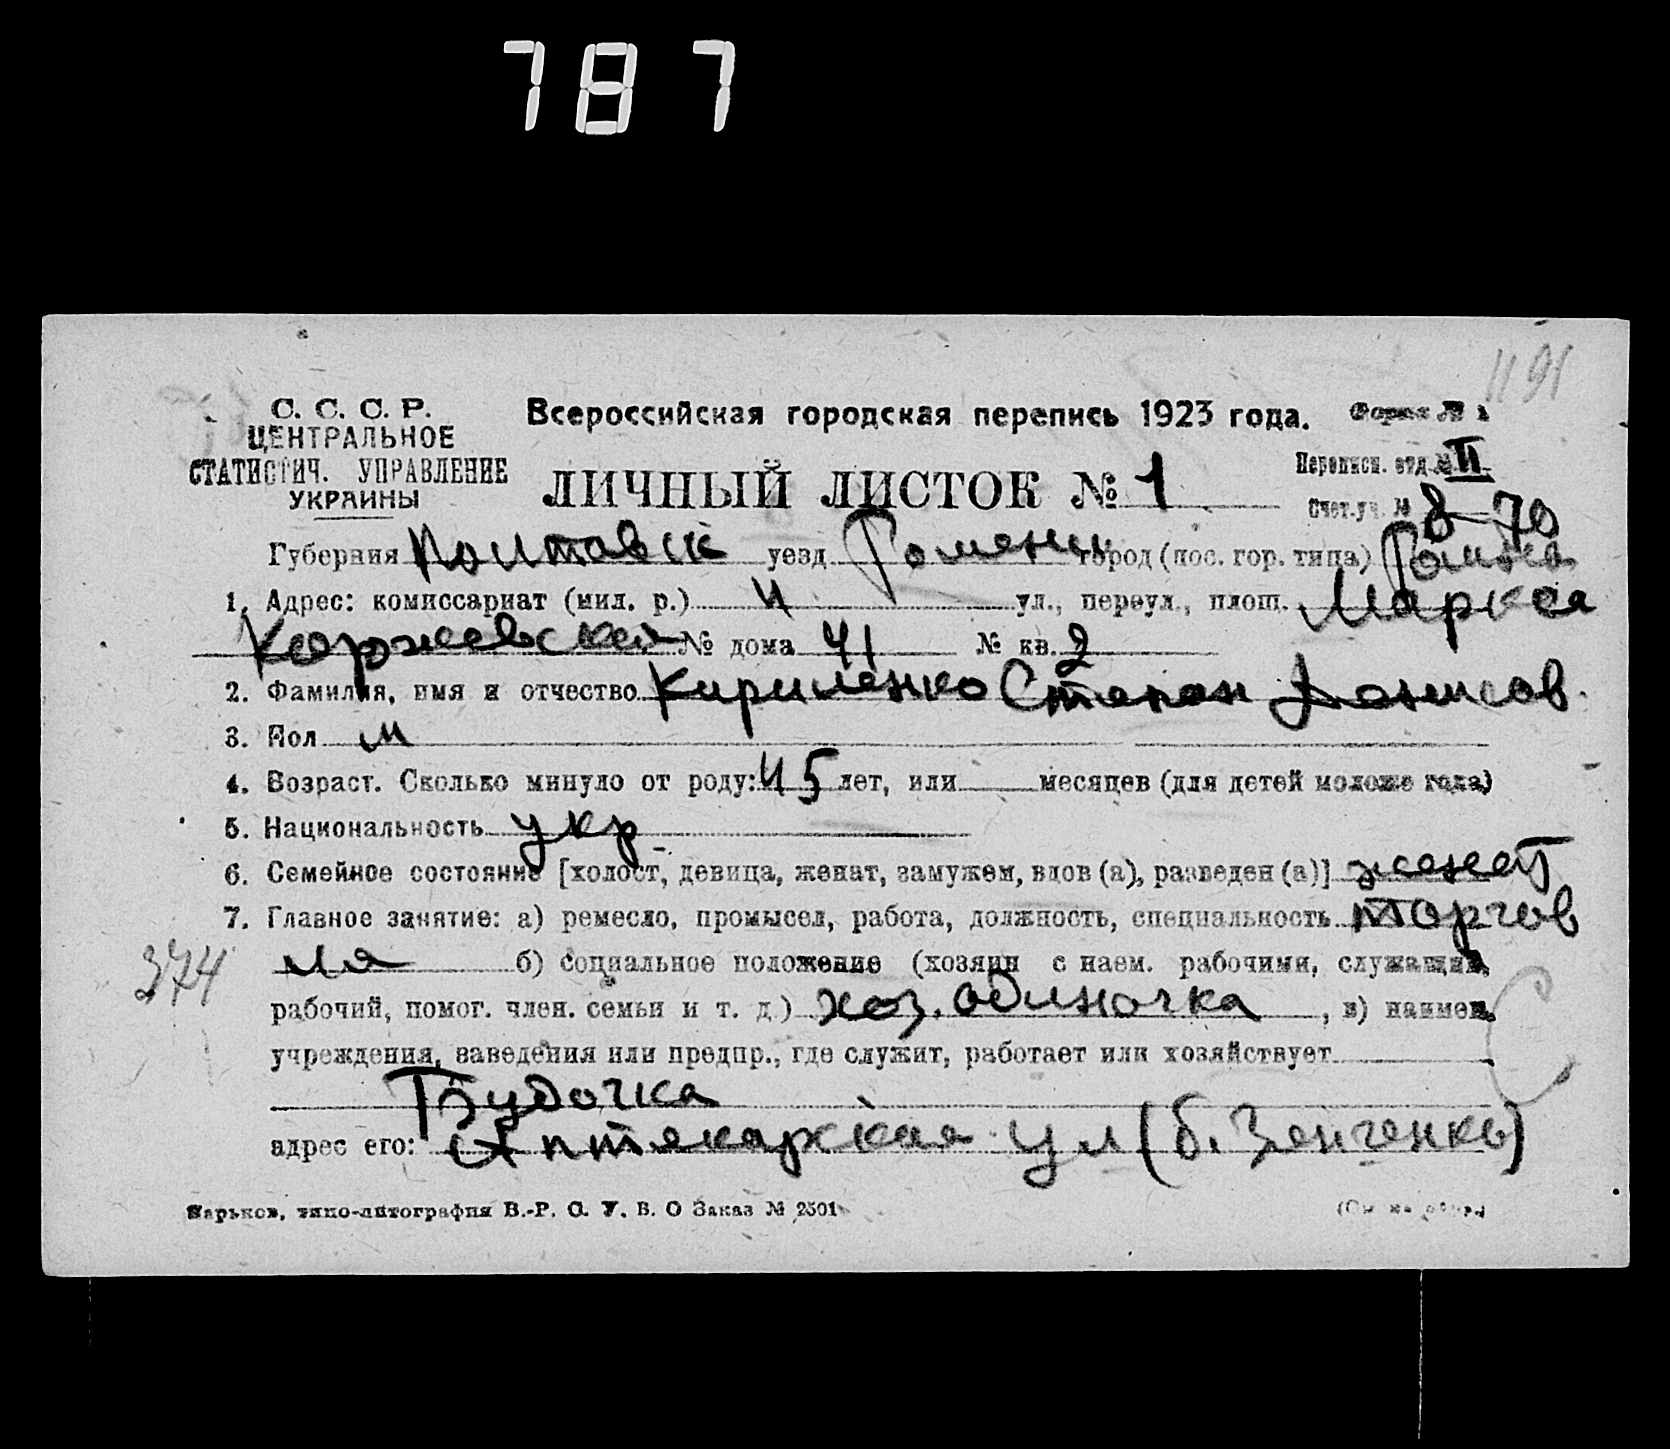 787
1191
С. С. С. Р.
ЦЕНТРАЛЬНОЕ
СТАТИСТИЧ. УПРАВЛЕНИЕ
УКРАИНЫ
Всероссийская городская перепись 1923 года. Форма № 1
ЛИЧНЫЙ ЛИСТОК № 1
Переписн. отд. № II
Счет.уч. № 8 70
Губерния Полтавск уезд Роменск город (пос. гор. типа) Ромны
1. Адрес: комиссариат (мил. р.) 4 ул., переул., площ. Маркса
Коржевская № дома 41 № кв. 2
2. Фамилия, имя и отчество Кириленко Степан Денисов
3. Пол м
4. Возраст. Сколько минуло от роду: 45 лет, или месяцев (для детей моложе года)
5. Национальность укр
6. Семейное состояние [холост, девица, женат, замужем, вдов (а), разведен (а)] женат
7. Главное занятие: а) ремесло, промысел, работа, должность, специальность торгов
374
ля б) социальное положение (хозяин с наем. рабочими, служащий,
рабочий, помог. член. семьи и т. д) хоз. одиночка, в) наимен.
учреждения, заведения или предпр., где служит, работает или хозяйствует
Будочка
адрес его: Аптекарская ул (б. Зенченко)
Харьков, типо-литография В.-Р. С. У. В. О Заказ № 2501